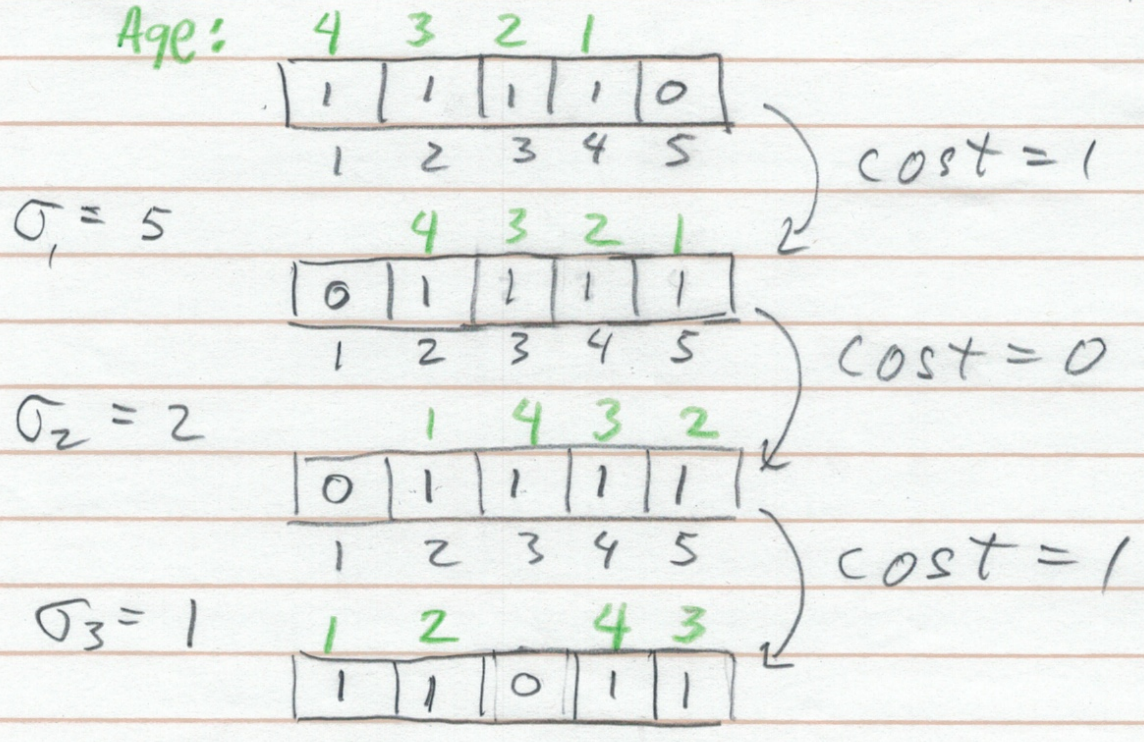 Age: 4 3 2 1
1 1 1 1 0
1 2 3 4 5
cost = 1
σ₁ = 5
4 3 2 1
0 1 1 1 1
1 2 3 4 5
cost = 0
σ₂ = 2
1 4 3 2
0 1 1 1 1
1 2 3 4 5
cost = 1
σ₃ = 1
1 2 4 3
1 1 0 1 1